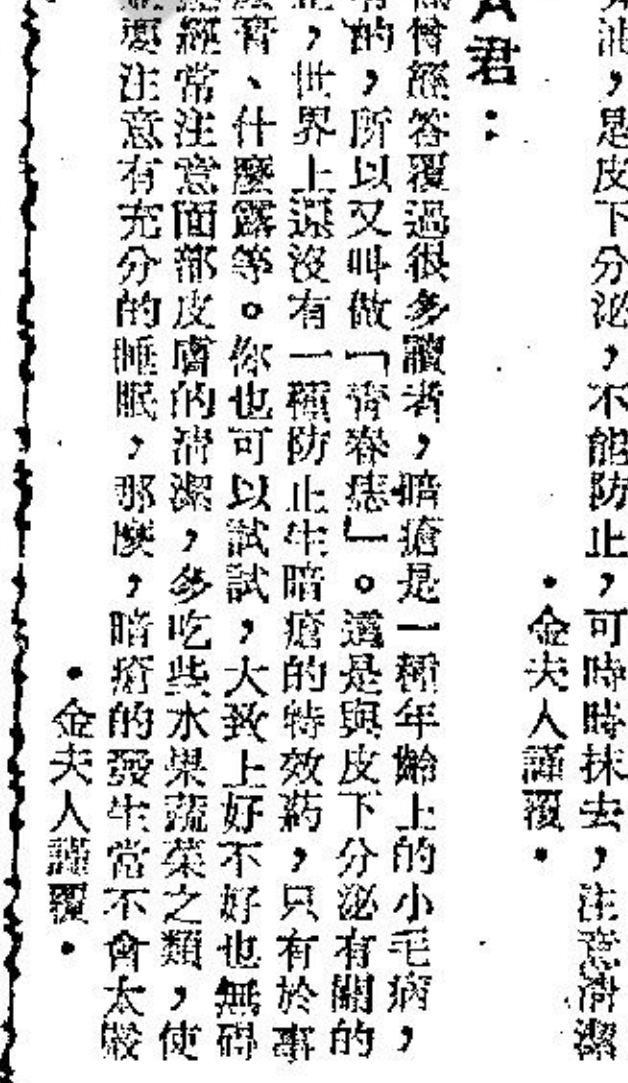 油，是皮下分泌，不能防止，可時時抹去，注意清潔
•金夫人謹覆•
A君：
曾經答覆過很多讀者，暗瘡是一種年齡上的小毛病，
的，所以又叫做「青春痣」。這是與皮下分泌有關的
，世界上還沒有一種防止生暗瘡的特效葯，只有於事
膏、什麼露等。你也可以試試，大致上好不好也無碍
經常注意面部皮膚的清潔，多吃些水果蔬菜之類，使
要注意有充分的睡眠，那麼，暗瘡的發生當不會太嚴
•金夫人謹覆•